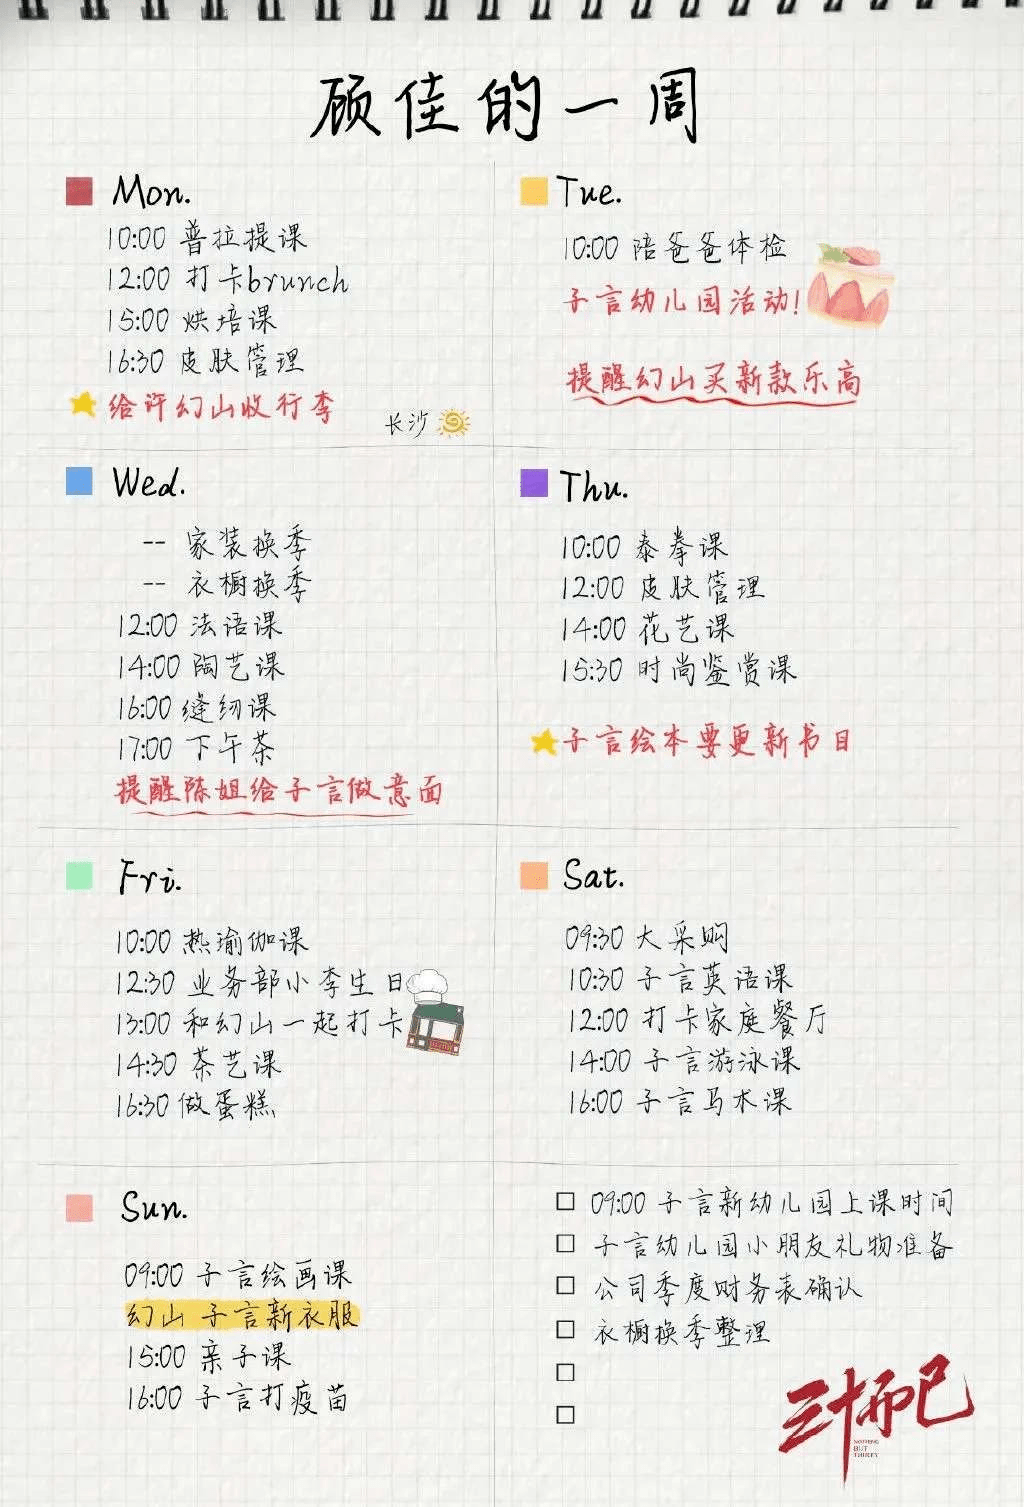 顾佳的一周
Mon.
10:00 普拉提课
12:00 打卡brunch
15:00 烘培课
16:30 皮肤管理
给许幻山收行李
长沙
Tue.
10:00 陪爸爸体检
子言幼儿园活动!
提醒幻山买新款乐高
Wed.
-- 家装换季
-- 衣橱换季
12:00 法语课
14:00 陶艺课
16:00 缝纫课
17:00 下午茶
提醒陈姐给子言做意面
Thu.
10:00 泰拳课
12:00 皮肤管理
14:00 花艺课
15:30 时尚鉴赏课
子言绘本要更新书目
Fri.
10:00 热瑜伽课
12:30 业务部小李生日
13:00 和幻山一起打卡
14:30 茶艺课
16:30 做蛋糕
Sat.
09:30 大采购
10:30 子言英语课
12:00 打卡家庭餐厅
14:00 子言游泳课
16:00 子言马术课
Sun.
09:00 子言绘画课
幻山 子言新衣服
15:00 亲子课
16:00 子言打疫苗
09:00 子言新幼儿园上课时间
子言幼儿园小朋友礼物准备
公司季度财务表确认
衣橱换季整理
三十而已
NOTHING
BUT
THIRTY